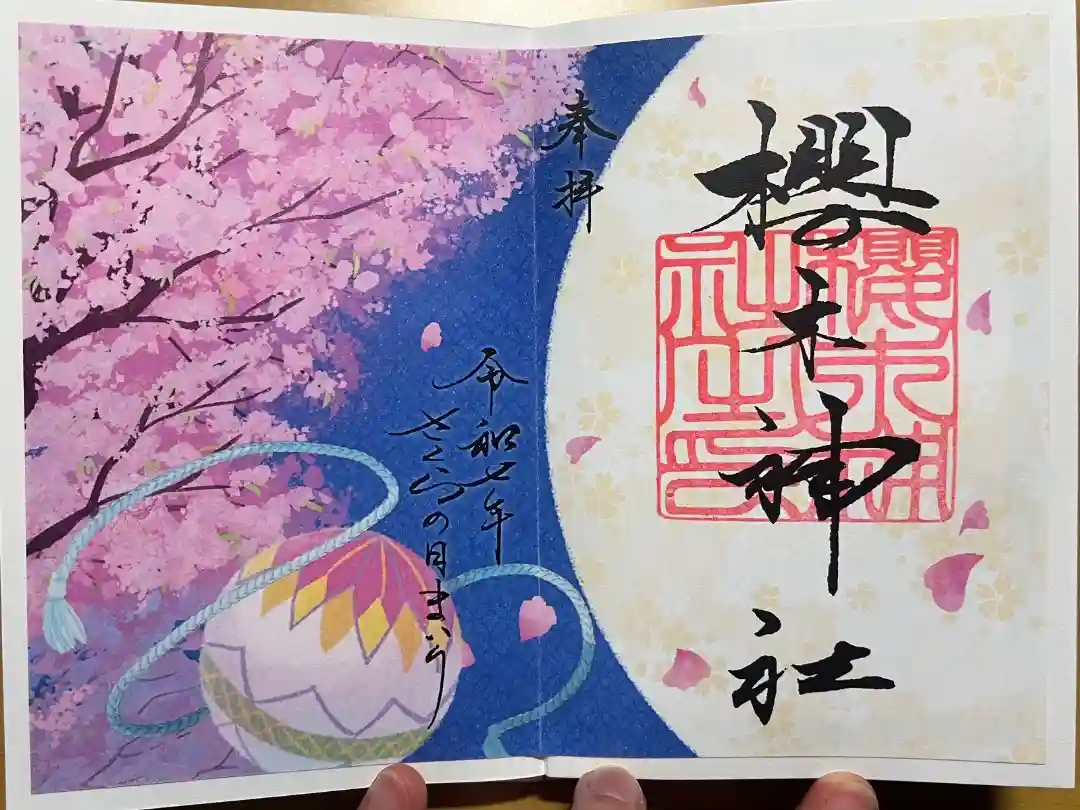 櫻木神社
櫻木神
社之印
奉拝
令和七年
さくらの月まいり